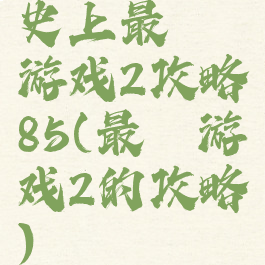 史上最
游戏2攻略
85(最 游
戏2的攻略
)